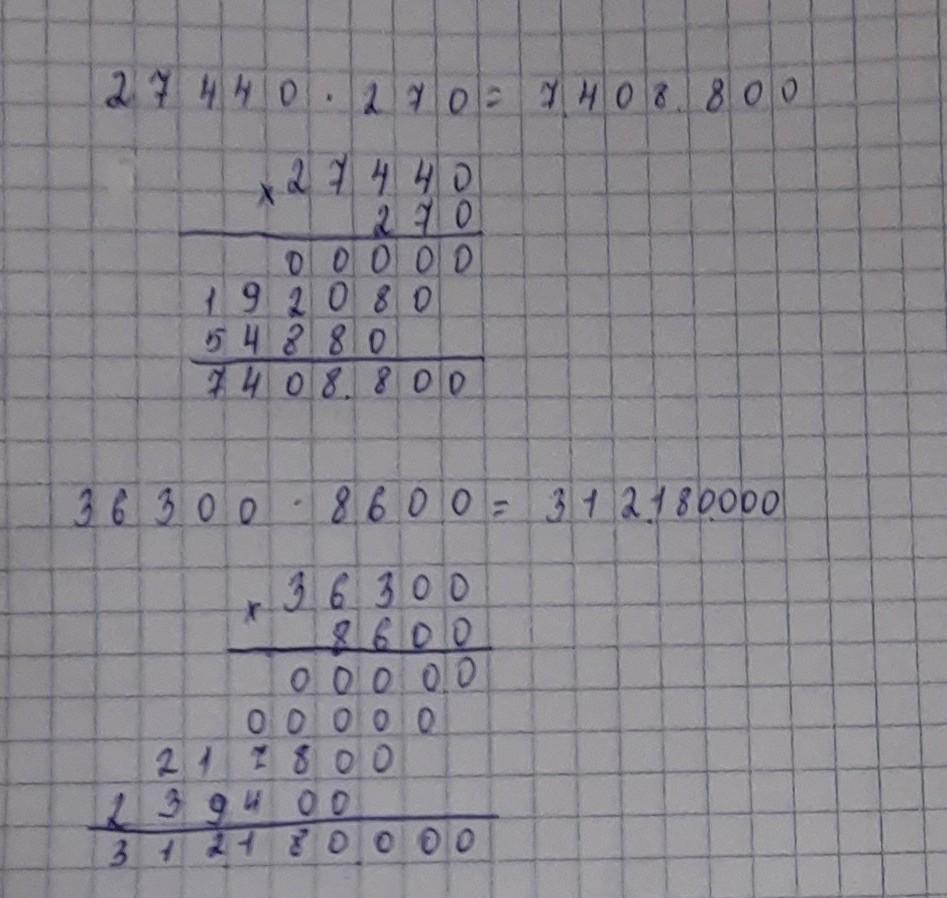 27440 · 270 = 7.408.800
x 27440
270
00000
192080
54880
7408.800
36300 · 8600 = 312.180.000
x 36300
8600
00000
00000
217800
239400
312180000